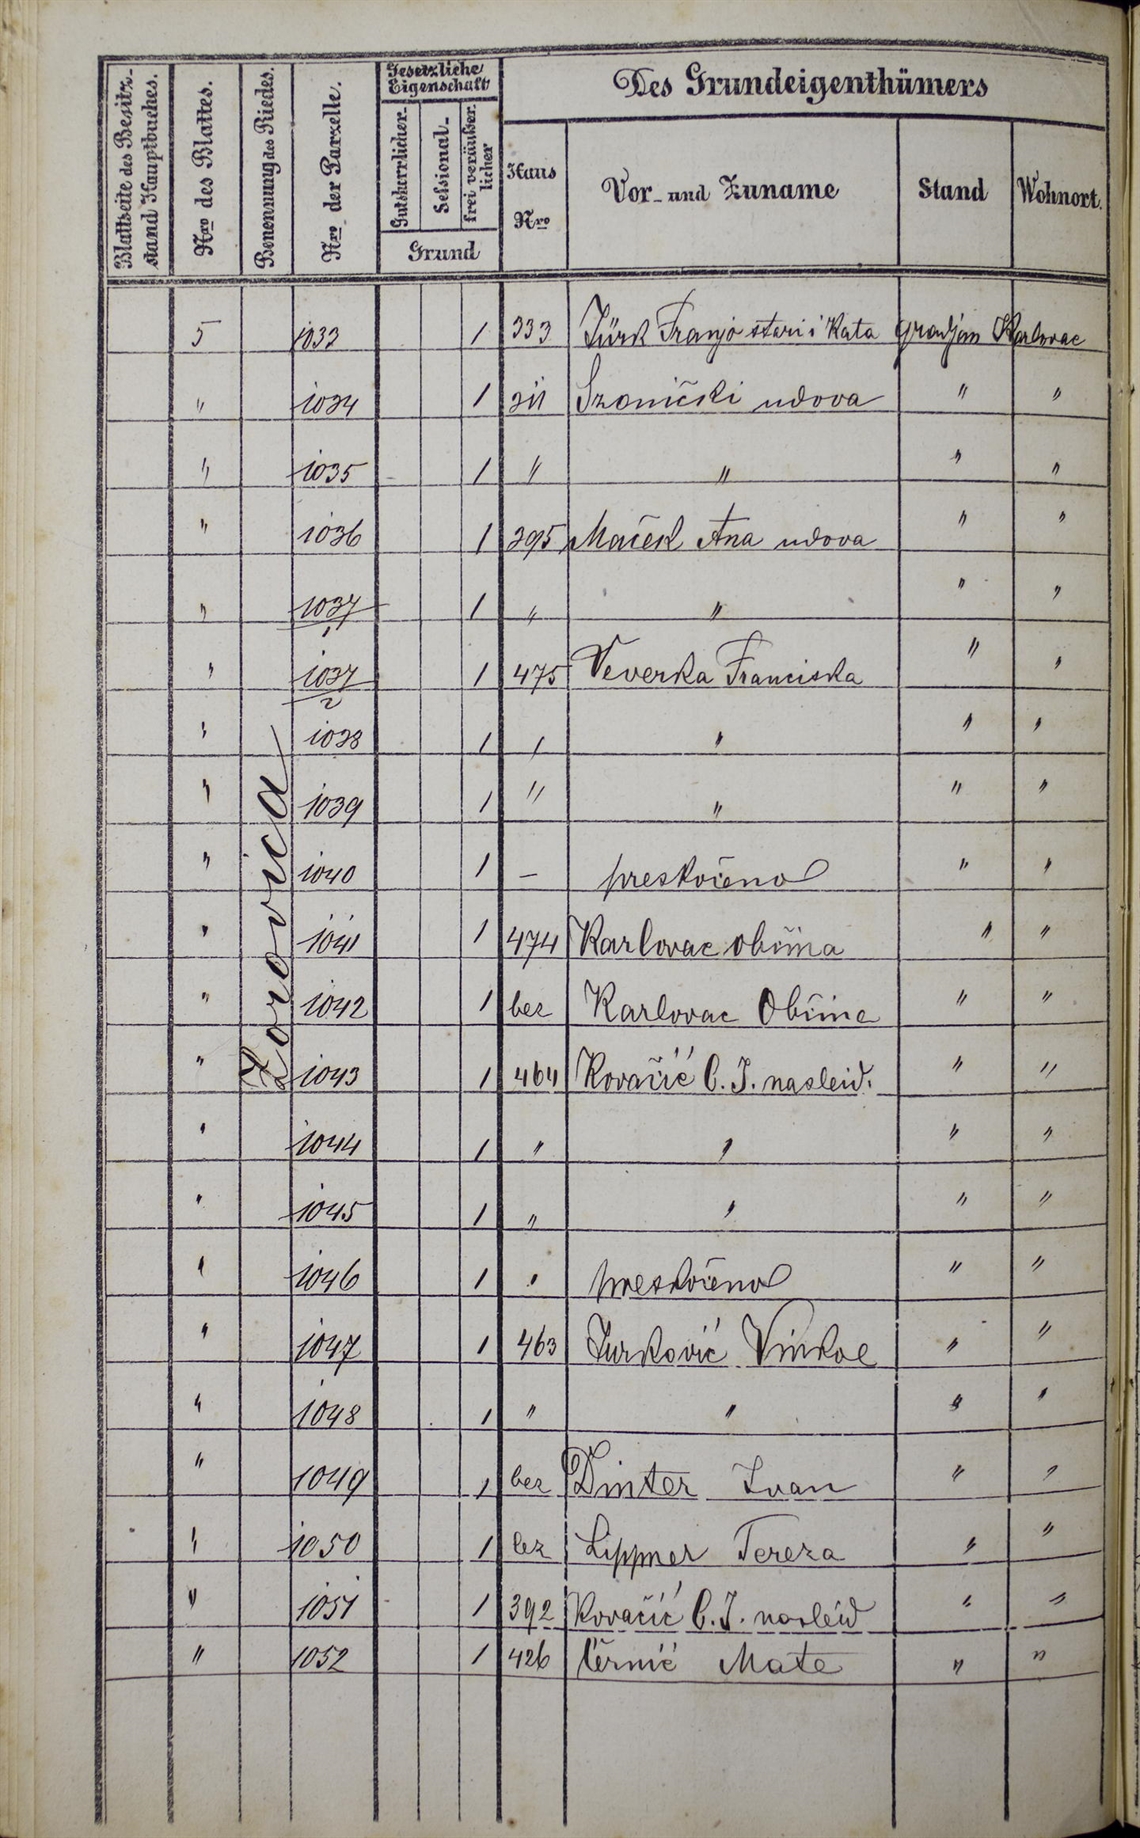 Blattseite des Besitz-stand Hauptbuches.
Nro des Blattes.
Benennung des Riedes.
Nro der Parzelle.
Gesetzliche Eigenschaft
Gutsherrlicher-
Sessional-
frei veräußerlicher
Grund
Des Grundeigenthümers
Haus Nro
Vor- und Zuname
Stand
Wohnort.
Zorovica
5 1033 1 333 Türk Franjo stari i Kata gradjan Karlovac
" 1034 1 udova " "
" 1035 1 " " " "
" 1036 1 395 Maček Ana udova " "
" 1037/1 1 " " " "
" 1037/2 1 475 Veverka Franciska " "
" 1038 1 " " " "
" 1039 1 " " " "
" 1040 1 – preskočeno " "
" 1041 1 474 Karlovac obćina " "
" 1042 1 bez Karlovac Obćina " "
" 1043 1 464 Kovačić C. J. nasleid. " "
" 1044 1 " " " "
" 1045 1 " " " "
" 1046 1 " preskočeno " "
" 1047 1 463 Jurković Vinko " "
" 1048 1 " " " "
" 1049 1 bez Dinter Ivan " "
" 1050 1 bez Lippner Tereza " "
" 1051 1 392 Kovačić C. J. nasleid " "
" 1052 1 426 Černić Mate " "